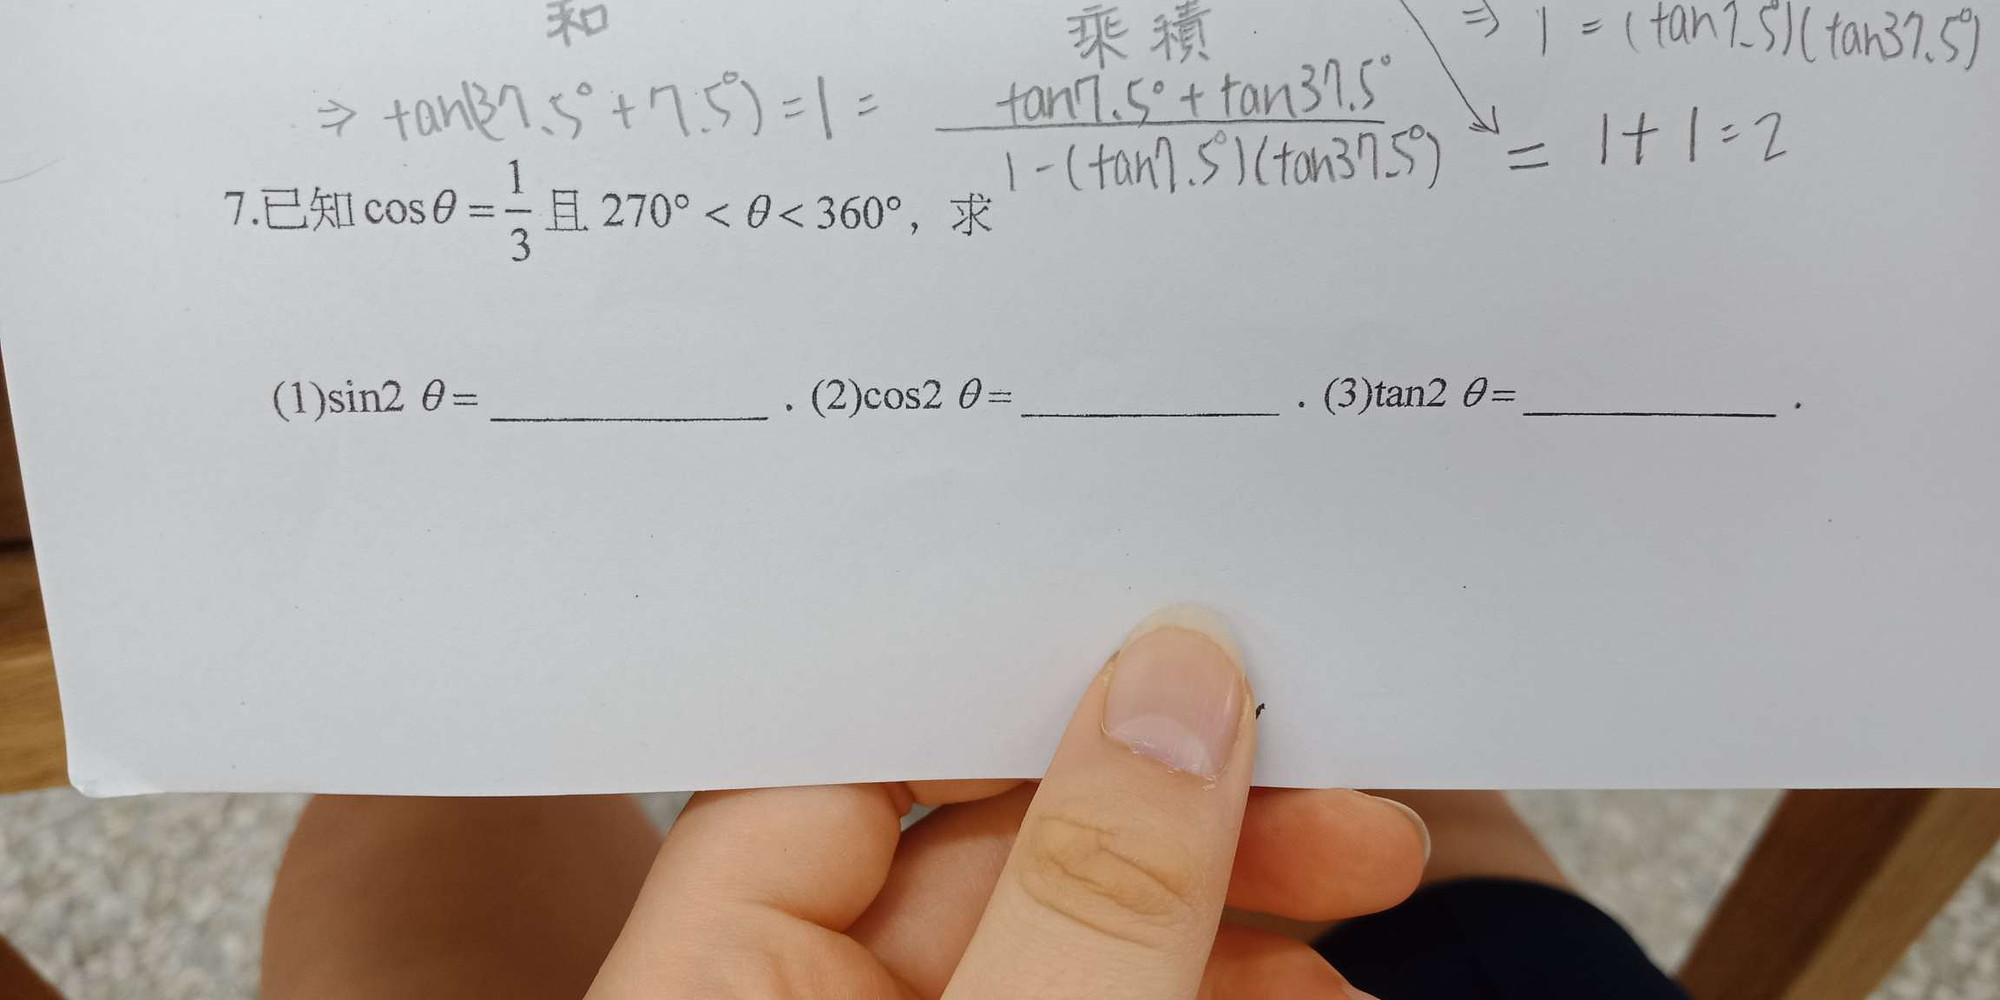 和 乘積 ⇒ 1 = (tan7.5°)(tan37.5°)
⇒ tan(37.5° + 7.5°) = 1 = \frac{tan7.5° + tan37.5°}{1 - (tan7.5°)(tan37.5°)} = 1 + 1 = 2
7.已知 cosθ = \frac{1}{3} 且 270° < θ < 360°，求
(1)sin2 θ= ____________ . (2)cos2 θ= ____________ . (3)tan2 θ= ____________ .